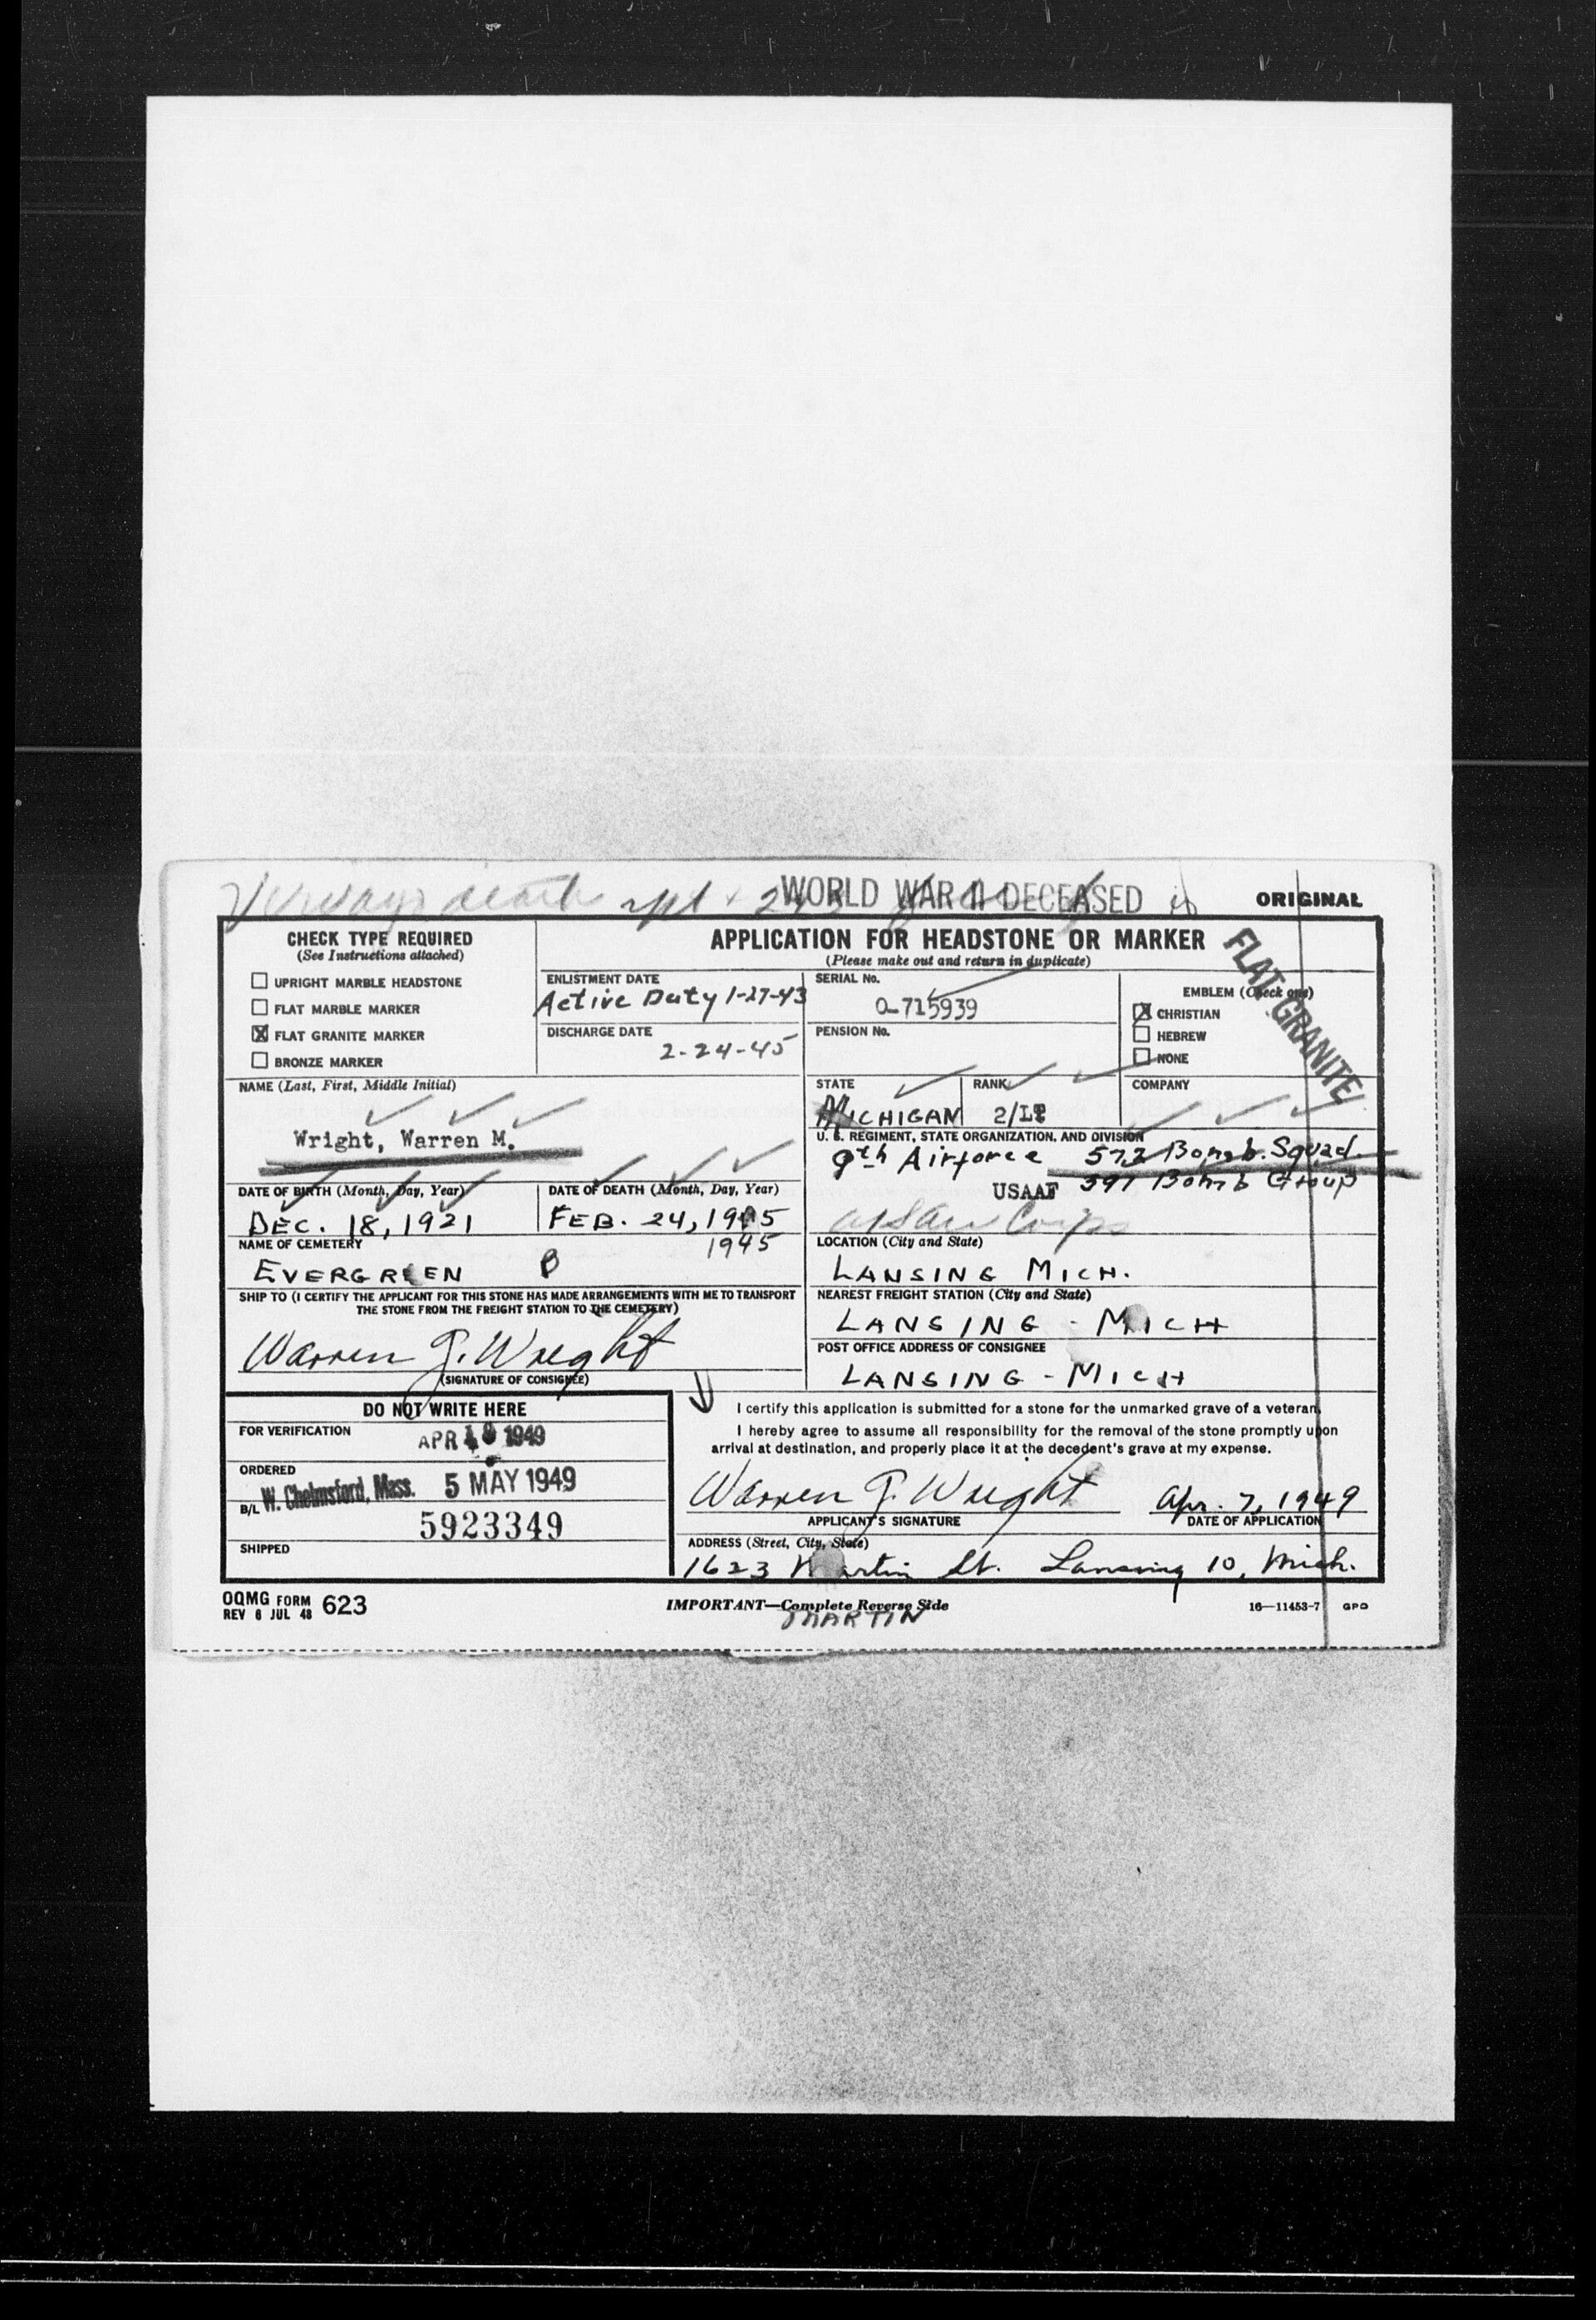 death rpt
WORLD WAR II DECEASED
ORIGINAL
CHECK TYPE REQUIRED
(See Instructions attached)
UPRIGHT MARBLE HEADSTONE
FLAT MARBLE MARKER
FLAT GRANITE MARKER
BRONZE MARKER
APPLICATION FOR HEADSTONE OR MARKER
(Please make out and return in duplicate)
ENLISTMENT DATE
Active Duty 1-27-43
DISCHARGE DATE
2-24-45
SERIAL No.
O-715939
PENSION No.
EMBLEM (Check one)
CHRISTIAN
HEBREW
NONE
FLAT GRANITE
NAME (Last, First, Middle Initial)
Wright, Warren M.
STATE
MICHIGAN
RANK
2/LT
COMPANY
U. S. REGIMENT, STATE ORGANIZATION, AND DIVISION
9th Airforce 572 Bomb. Squad.
USAAF 391 Bomb Group
Air Corps
DATE OF BIRTH (Month, Day, Year)
DEC. 18, 1921
DATE OF DEATH (Month, Day, Year)
FEB. 24, 1945
1945
NAME OF CEMETERY
EVERGREEN
LOCATION (City and State)
LANSING MICH.
SHIP TO (I CERTIFY THE APPLICANT FOR THIS STONE HAS MADE ARRANGEMENTS WITH ME TO TRANSPORT
THE STONE FROM THE FREIGHT STATION TO THE CEMETERY)
Warren G. Wright
(SIGNATURE OF CONSIGNEE)
NEAREST FREIGHT STATION (City and State)
LANSING - MICH
POST OFFICE ADDRESS OF CONSIGNEE
LANSING - MICH
DO NOT WRITE HERE
FOR VERIFICATION
APR 1949
ORDERED
W. Chelmsford, Mass. 5 MAY 1949
B/L
5923349
SHIPPED
I certify this application is submitted for a stone for the unmarked grave of a veteran.
I hereby agree to assume all responsibility for the removal of the stone promptly upon
arrival at destination, and properly place it at the decedent's grave at my expense.
Warren G. Wright
APPLICANT'S SIGNATURE
Apr. 7, 1949
DATE OF APPLICATION
ADDRESS (Street, City, State)
1623 Martin St. Lansing 10, Mich.
OQMG FORM 623
REV 6 JUL 48
IMPORTANT—Complete Reverse Side
MARTIN
16—11453-7 GPO